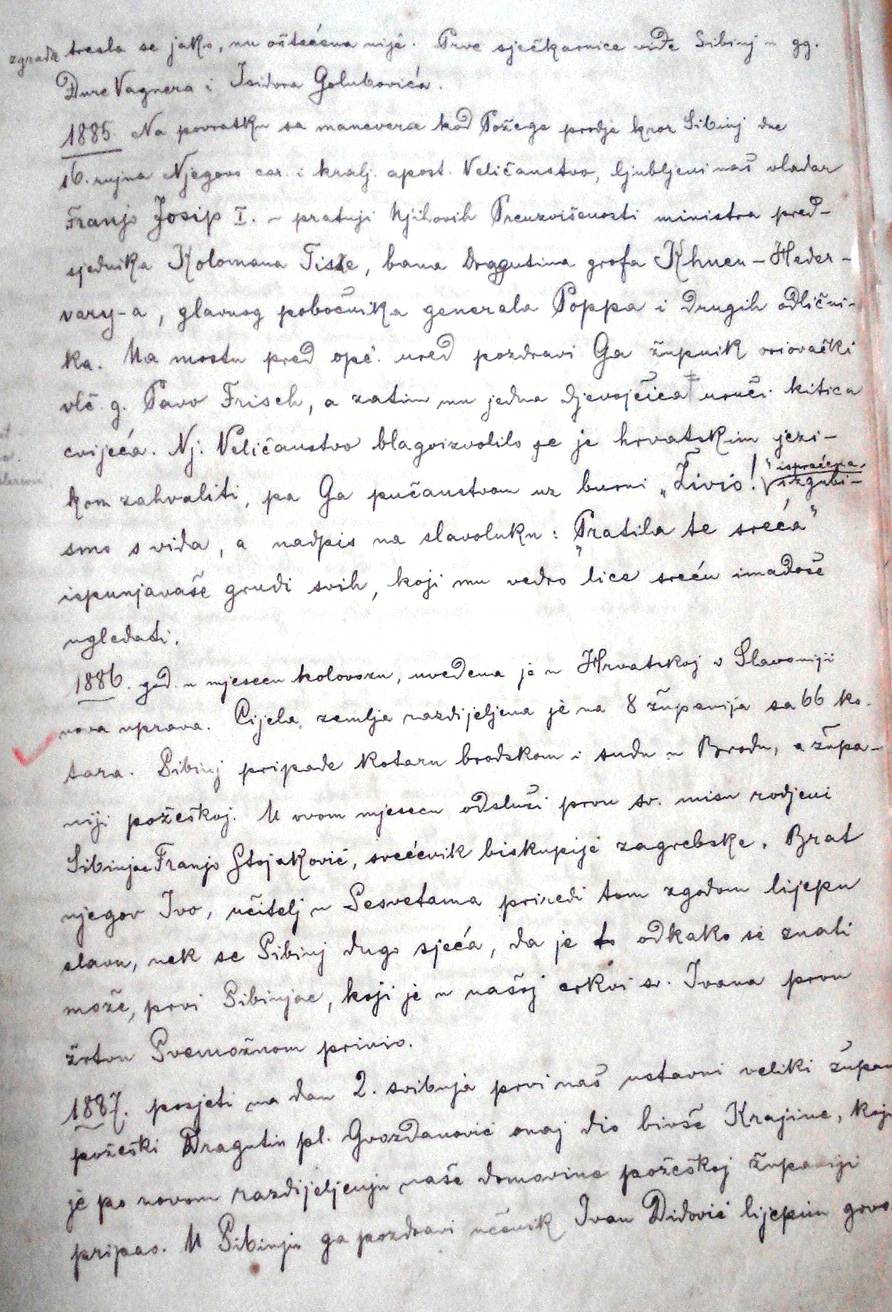 zgrada tresla se jako, nu oštećena nije. Prve sječkarnice viđe Sibinj u gg.
Đure Vagnera i Isidora Golubovića.
1885. Na povratku sa manevera kod Požege prodje kroz Sibinj dne
16. rujna Njegovo car. i kralj. apost. Veličanstvo, ljubljeni naš vladar
Franjo Josip I. – pratnji Njihovih Preuzvišenosti ministra pred-
sjednika Kolomana Tisze, bana Dragutina grofa Khuen-Heder-
vary-a, glavnog pobočnika generala Poppa i drugih odlični-
ka. Na mostu pred opć. ured pozdravi Ga župnik oriovački
vlč. g. Pavo Frisch, a zatim mu jedna djevojčica uruči kitica
cvijeća. Nj. Veličanstvo blagoizvolilo se je hrvatskim jezi-
kom zahvaliti, pa Ga pučanstvom uz burni „Živio! ispraćena izgubi-
smo s vida, a nadpis na slavoluku: "Pratila te sreća"
ispunjavaše grudi svih, koji mu vedro lice sreću imadoše
ugledati.
1886. god. u mjesecu kolovozu, uvedena je u Hrvatskoj i Slavoniji
nova uprava. Cijela zemlja razdijeljena je na 8 županija sa 66 ko-
tara. Sibinj pripade kotaru brodskom i sudu u Brodu, a župa-
niji požeškoj. U ovom mjesecu odsluži prvu sv. misu rodjeni
Sibinjac Franjo Stojaković, svećenik biskupije zagrebske. Brat
njegov Ivo, učitelj u Sesvetama priredi tom zgodom lijepu
slavu, nek se Sibinj dugo sjeća, da je to odkako se znati
može, prvi Sibinjac, koji je u našoj crkvi sv. Ivana prvu
žrtvu Svemožnom prinio.
1887. posjeti na dan 2. svibnja prvi naš ustavni veliki župan
požeški Dragutin pl. Gvozdanović onaj dio bivše Krajine, koji
je po novom razdijeljenju naše domovine požeškoj županiji
pripao. U Sibinju ga pozdravi učenik Ivan Didović lijepim govo